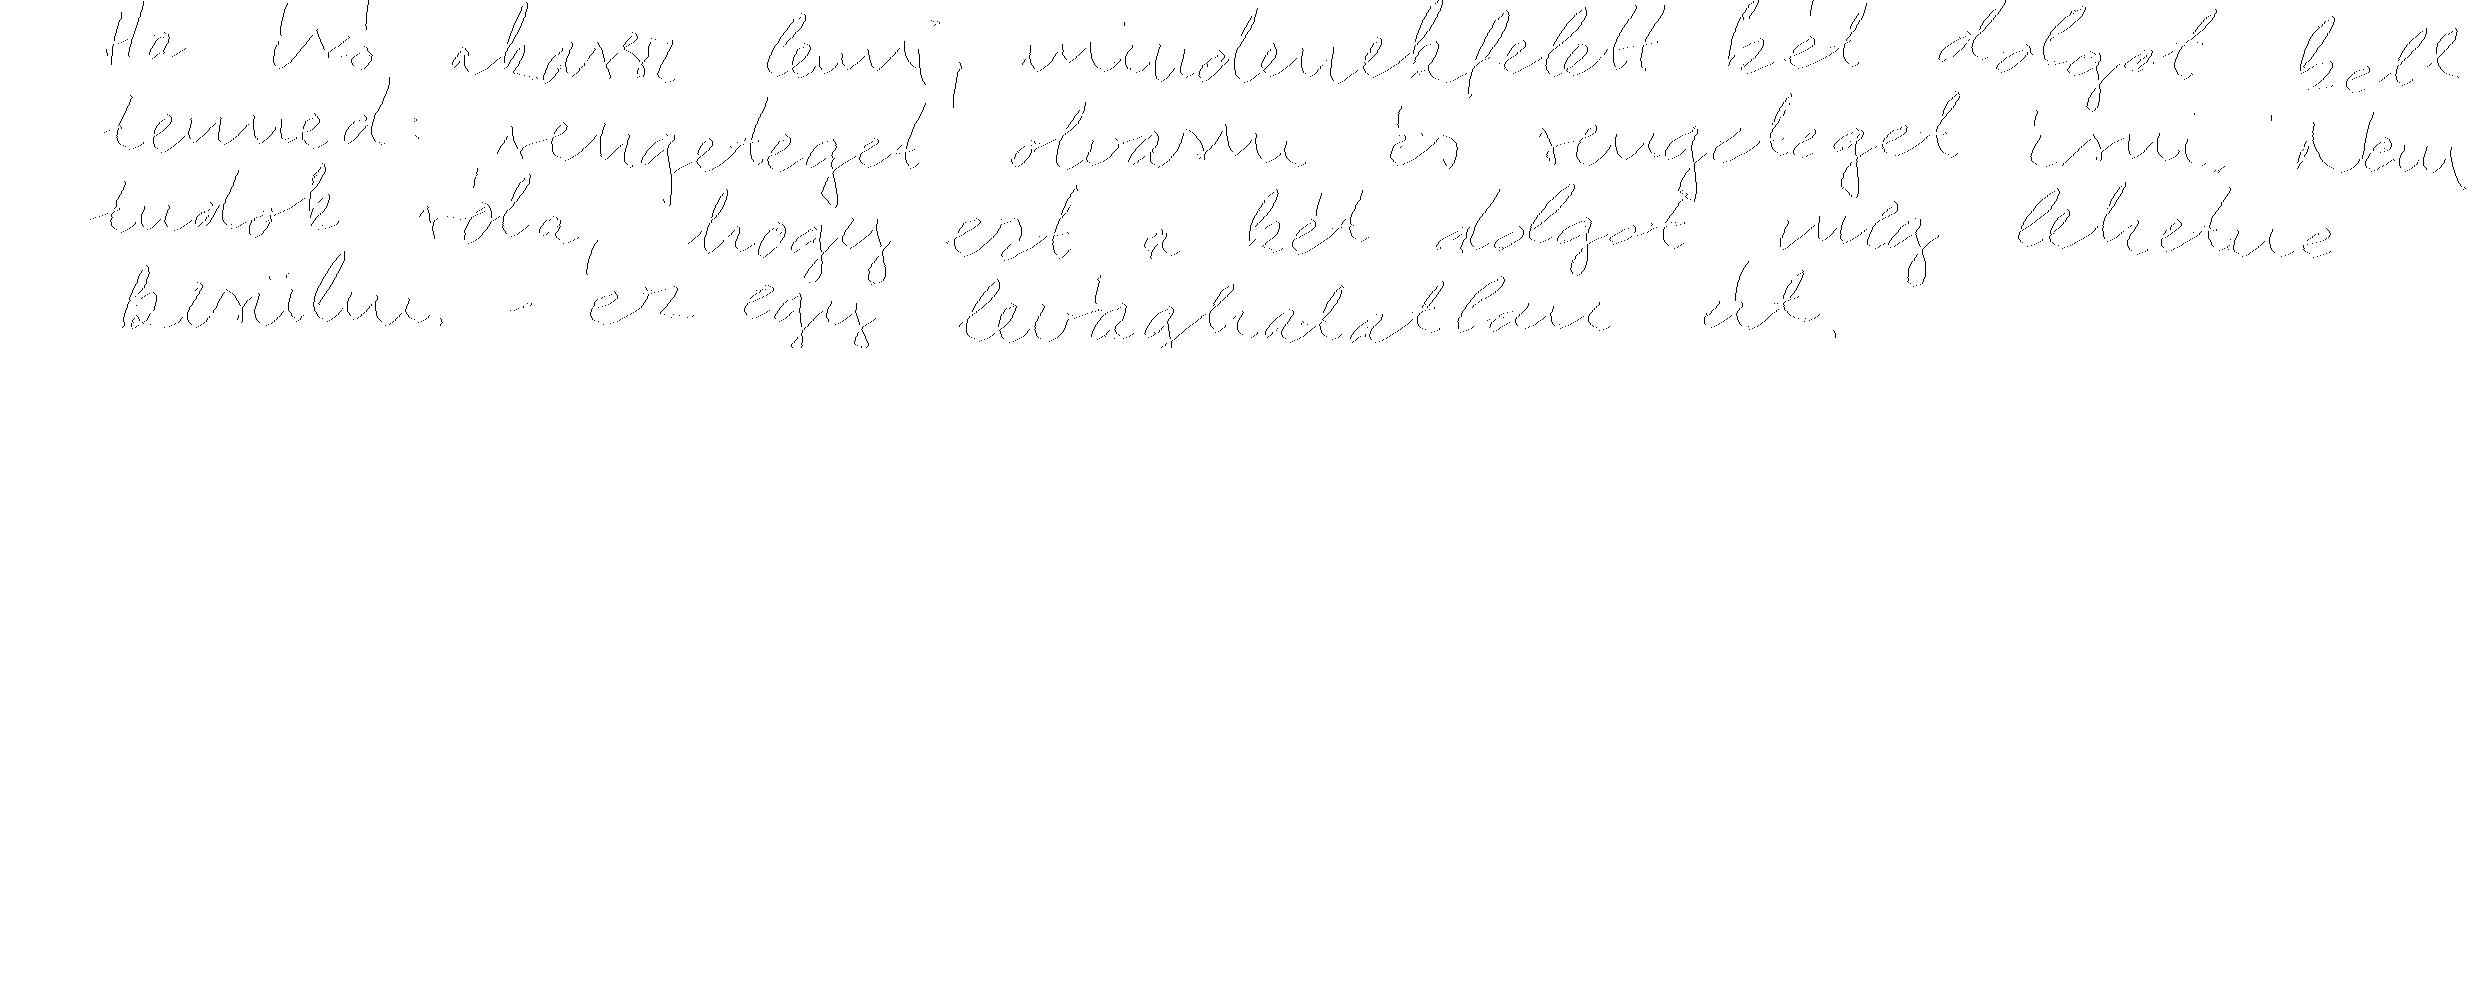 Ha író akarsz lenni, mindenekfelett két dolgot kell
tenned: rengeteget olvasni és rengeteget írni. Nem
tudok róla, hogy ezt a két dolgot meg lehetne
kerülni. - ez egy levághatatlan út.